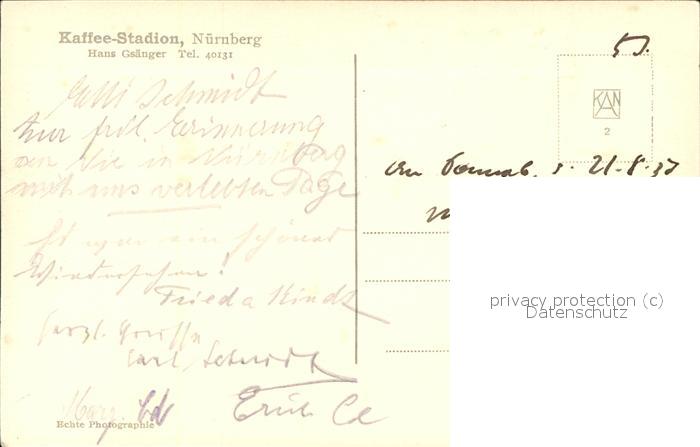 Kaffee-Stadion, Nürnberg
Hans Gsänger Tel. 40131
Schmidt
zur frdl. Erinnerung
an die in Nürnberg
mit uns verlebten Tage
Es war ein schönes
Wiedersehen!
Frieda
Herzl. Grüsse
Carl Schmidt
Marg.
Erich
Echte Photographie
KAN
2
21.8.37
privacy protection (c)
Datenschutz